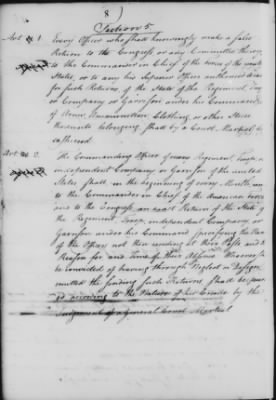 8
Section 5
Art. 1 Every Officer who shall knowingly make a false
Return to the Congress or any Committee thereof
to the Commander in Chief of the forces of the united
States, or to any his Superior Officer authorised to call
for such Returns, of the State of the Regiment,
or Company or Garrison under his Command
of Arms Ammunition Clothing or other Stores
thereunto belonging shall by a Court Martial be
cashiered
Art. 2. The Commanding Officer of every Regiment Troop or
independent Company or Garrison of the united
States shall in the beginning of every Month
to the Commander in Chief of the American forces
and to the Congress an exact Return of the State of
the Regiment Troop independent Company or
Garrison under his Command specifying the Names
of the Officers not then residing at their Posts and
Reason for and time of their Absence Whoever
be convicted of having through Neglect or Design
omitted the sending such Returns shall be
according to the Nature of his Crime by the
Judgment of a General Court Martial